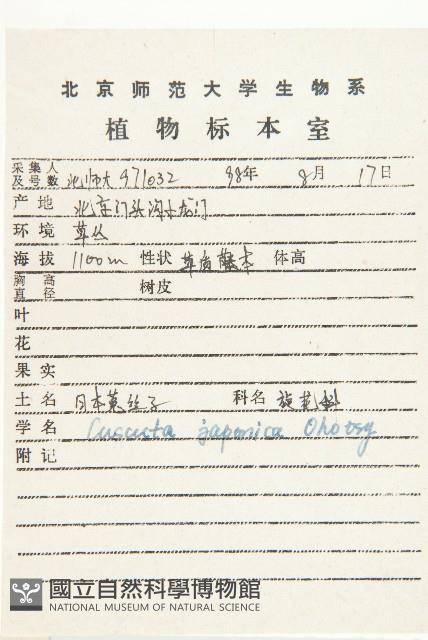 北京师范大学生物系
植物标本室
采集人及号数 北师大 971032 98年 8月 17日
产地 北京门头沟小龙门
环境 草丛
海拔 1100m 性状 草质藤本 体高
胸高直径 树皮
叶
花
果实
土名 日本菟丝子 科名 旋花科
学名 Cuscuta japonica
附记
國立自然科學博物館
NATIONAL MUSEUM OF NATURAL SCIENCE